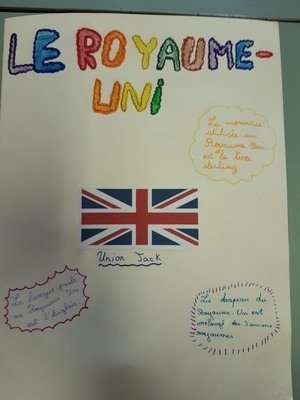 LE ROYAUME-
UNI
La monnaie
utilisée au
Royaume-Uni
est la livre
sterling
Union Jack
La langue parlé
au Royaume-Uni
est l'anglais
Le drapeau du
Royaume-Uni est
mélangé des 3 anciens
royaumes